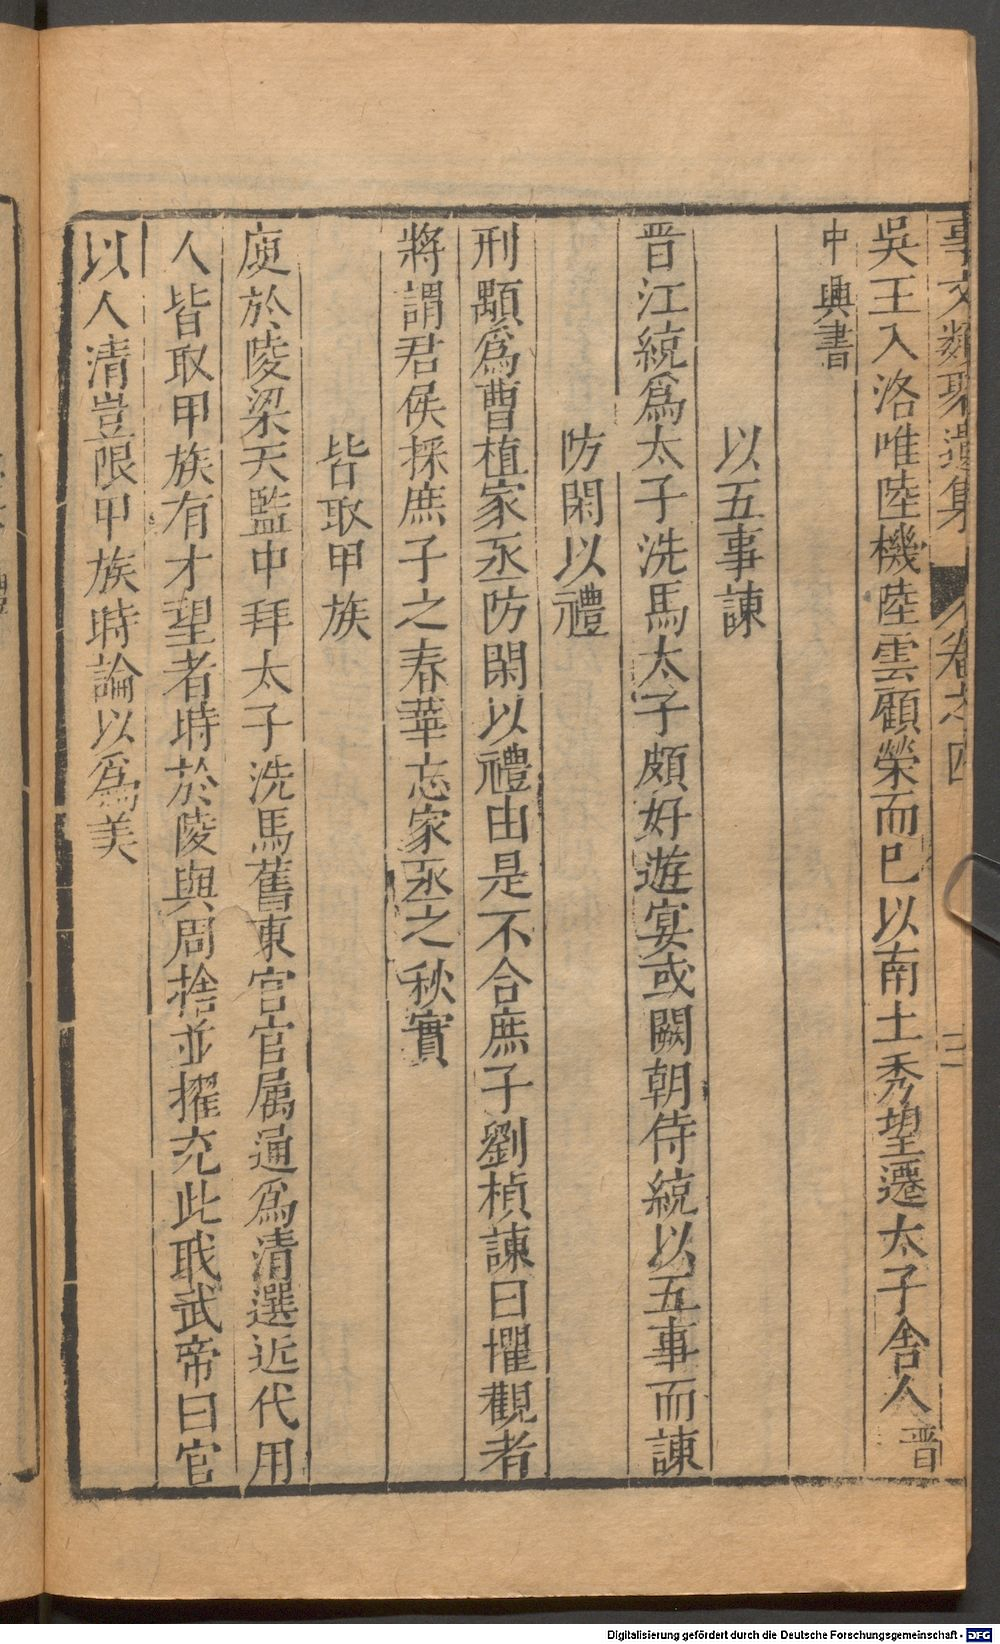 事文類聚遺集 卷之四 三
吳王入洛唯陸機陸雲顧榮而巳以南土秀望遷太子舍人晋
中興書
以五事諌
晋江統爲太子洗馬太子頗好遊宴或闕朝侍統以五事而諌
防閑以禮
刑顒爲曹植家丞防閑以禮由是不合庶子劉楨諌曰懼觀者
將謂君侯採庶子之春華忘家丞之秋實
皆取甲族
庾於陵梁天監中拜太子洗馬舊東宫官属通爲清選近代用
人皆取甲族有才望者時於陵與周捨並擢充此職武帝曰官
以人清豈限甲族時論以爲美
Digitalisierung gefördert durch die Deutsche Forschungsgemeinschaft - DFG